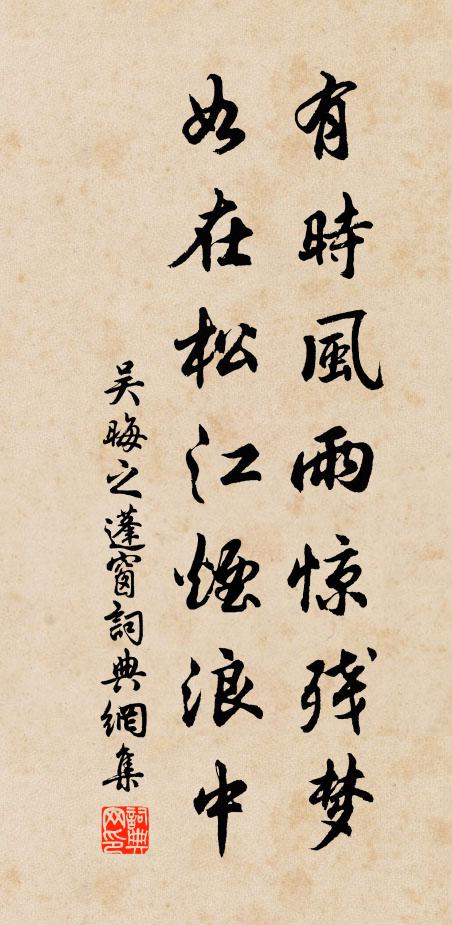 有時風雨惊残梦
如在松江煙浪中
吴晦之蓬窗詞典網集
詞典网印